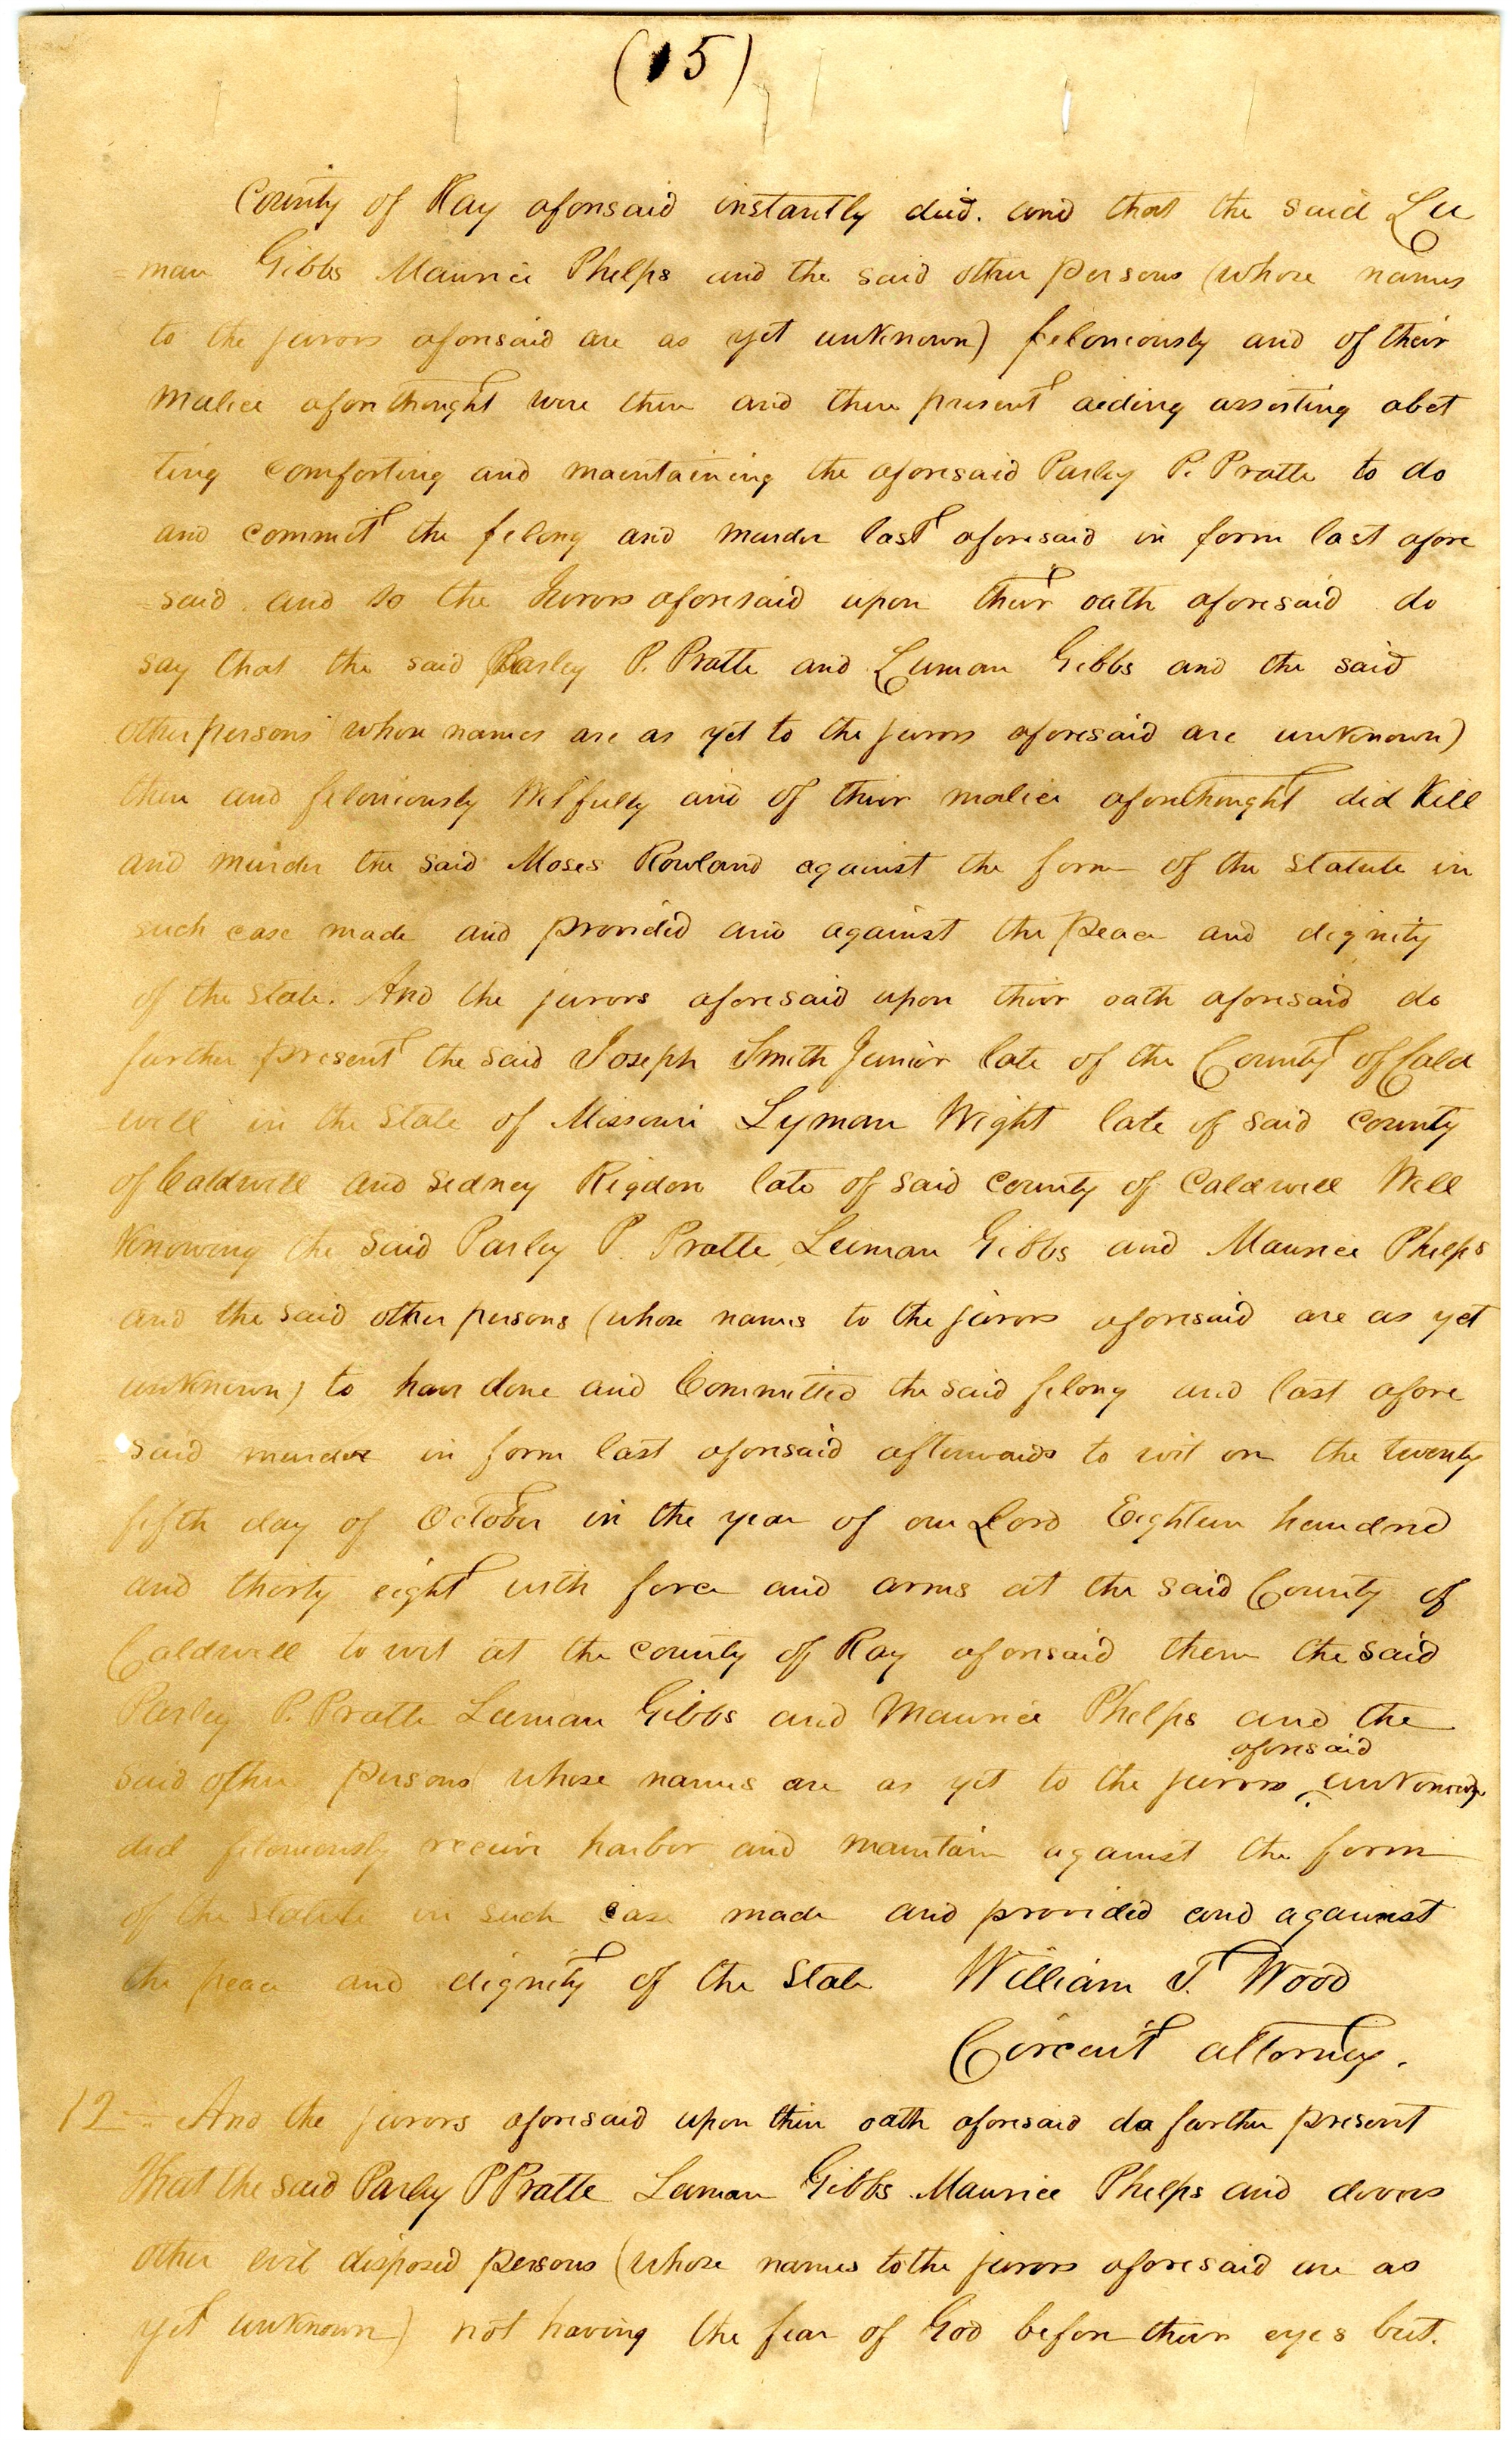 (15)
County of Ray aforesaid instantly died. and that the said Lu
=man Gibbs Maurice Phelps and the said other persons (whose names
to the jurors aforesaid are as yet unknown) feloniously and of their
malice aforethought were then and there present aiding assisting abet
ting comforting and maintaining the aforesaid Parley P. Pratte to do
and commit the felony and murder last aforesaid in form last afore
=said. and so the Jurors aforesaid upon their oath aforesaid do
say that the said Parley P. Pratte and Luman Gibbs and the said
other persons (whose names are as yet to the jurors aforesaid are unknown)
then and feloniously Wilfully and of their malice aforethought did Kill
and murder the said Moses Rowland against the form of the statute in
such case made and provided and against the peace and dignity
of the State. And the jurors aforesaid upon their oath aforesaid do
further present the said Joseph Smith Junior late of the County of Cald
=well in the State of Missouri Lyman Wight late of said county
of Caldwell and Sidney Rigdon late of said county of Caldwell Well
Knowing the said Parley P. Pratte Luman Gibbs and Maurice Phelps
and the said other persons (whose names to the jurors aforesaid are as yet
unknown) to have done and Committed the said felony and last afore
=said murder in form last aforesaid afterwards to wit on the twenty
fifth day of October in the year of our Lord Eighteen hundred
and thirty eight with force and arms at the said County of
Caldwell to wit at the county of Ray aforesaid them the said
Parley P. Pratte Luman Gibbs and Maurice Phelps and the
said other persons (whose names are as yet to the jurors aforesaid unknown)
did feloniously receive harbor and maintain against the form
of the statute in such case made and provided and against
the peace and dignity of the State William T. Wood
Circuit attorney.
12 And the jurors aforesaid upon their oath aforesaid do further present
That the said Parley P Pratte Luman Gibbs Maurice Phelps and divers
other evil disposed persons (whose names to the jurors aforesaid are as
yet unknown) not having the fear of God before their eyes but.